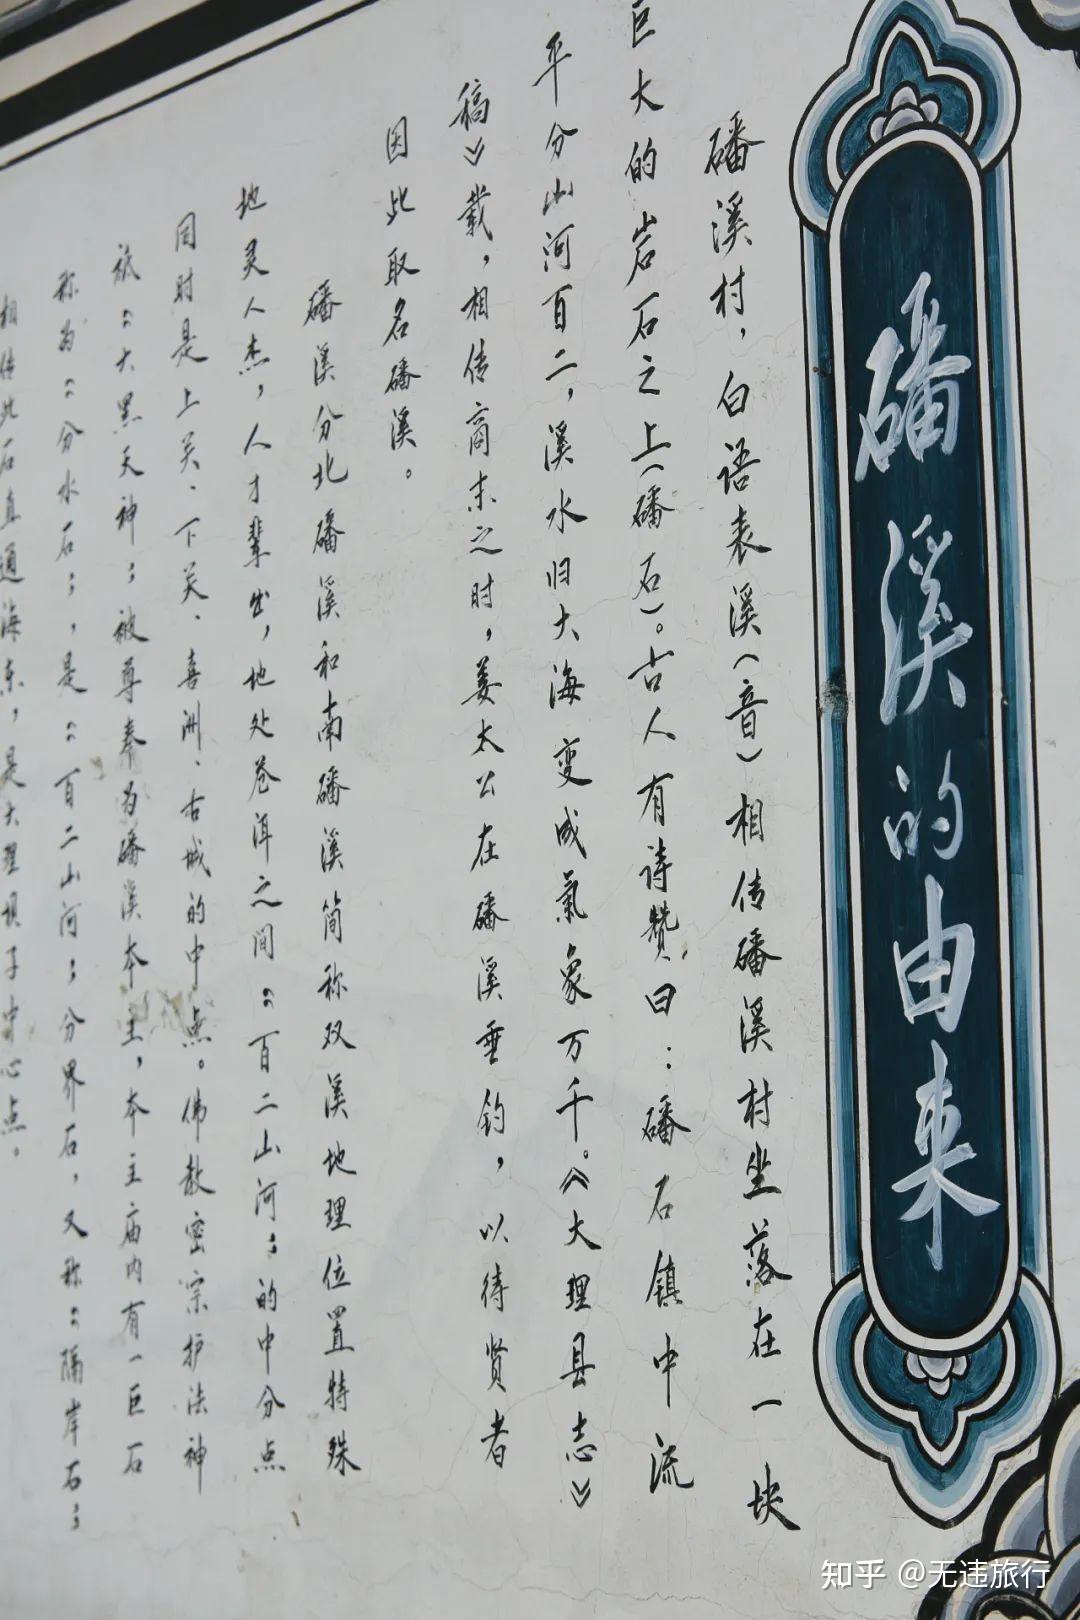 磻溪的由来
磻溪村，白语表溪（音）相传磻溪村坐落在一块
巨大的岩石之上（磻石）。古人有诗赞曰：磻石镇中流
平分山河百二，溪水归大海变成氣象万千。《大理县志》
稿》载，相传商末之时，姜太公在磻溪垂钓，以待贤者
因此取名磻溪。
磻溪分北磻溪和南磻溪简称双溪地理位置特殊
地灵人杰，人才辈出，地处苍洱之间“百二山河”的中分点
同时是上关、下关、喜洲、古城的中点。佛教密宗护法神
祇“大黑天神”被尊奉为磻溪本主，本主庙内有一巨石
称为“分水石”，是“百二山河”分界石，又称“隔岸石”
相传此石直通海东，是大理坝子中心点。
知乎 @无违旅行